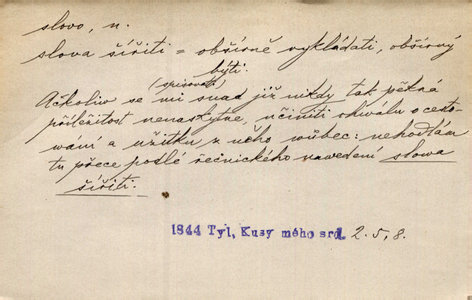 slovo, n.
slova šířiti = obšírně vykládati, obšírný
býti.
(spisovateli)
Ačkoliv se mi snad již nikdy tak pěkná
příležitost nenaskytne, učiniti chwálu o cesto-
wání a užitku z něho wůbec: nehodlám
tu přece podlé řečnického nawedení slowa
šířiti.
1844 Tyl, Kusy mého srd. 2.5,8.